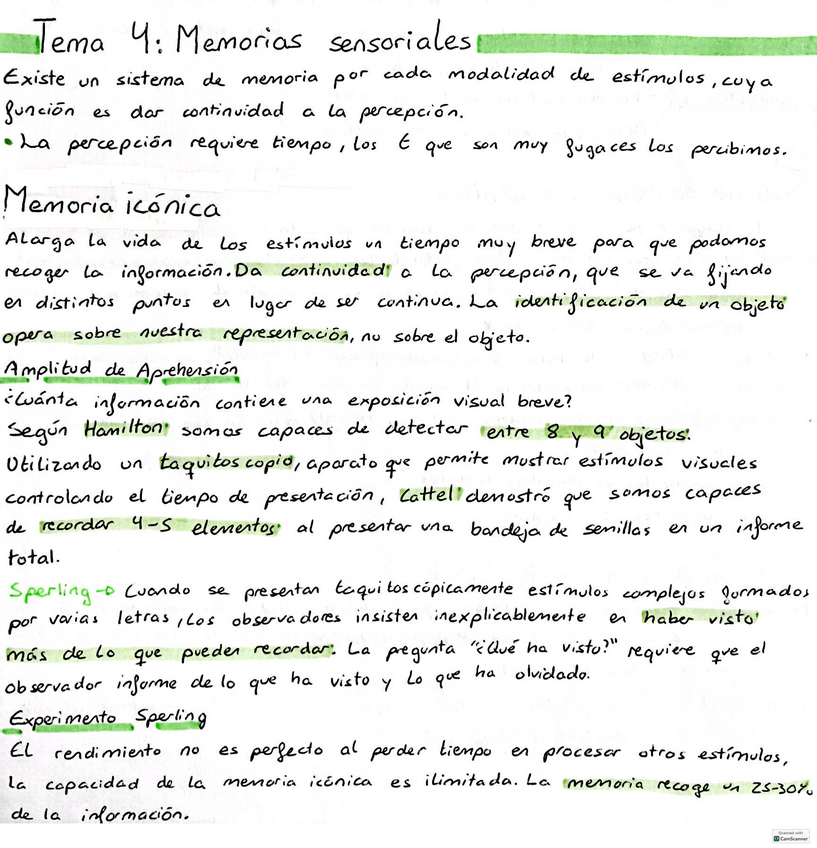 Tema 4: Memorias sensoriales
Existe un sistema de memoria por cada modalidad de estímulos, cuya
función es dar continuidad a la percepción.
• La percepción requiere tiempo, los E que son muy fugaces los percibimos.
Memoria icónica
Alarga la vida de los estímulos un tiempo muy breve para que podamos
recoger la información. Da continuidad a la percepción, que se va fijando
en distintos puntos en lugar de ser continua. La identificación de un objeto
opera sobre nuestra representación, no sobre el objeto.
Amplitud de Aprehensión
¿Cuánta información contiene una exposición visual breve?
Según Hamilton somos capaces de detectar entre 8 y 9 objetos.
Utilizando un taquitoscopio, aparato que permite mostrar estímulos visuales
controlando el tiempo de presentación, Cattel demostró que somos capaces
de recordar 4-5 elementos al presentar una bandeja de semillas en un informe
total.
Sperling → Cuando se presentan taquitoscópicamente estímulos complejos formados
por varias letras, los observadores insisten inexplicablemente en haber visto
más de lo que pueden recordar. La pegunta "¿Qué ha visto?" requiere que el
observador informe de lo que ha visto y lo que ha olvidado.
Experimento Sperling
El rendimiento no es perfecto al perder tiempo en procesar otros estímulos,
la capacidad de la memoria icónica es ilimitada. La memoria recoge un 25-30%
de la información.
Scanned with
CamScanner